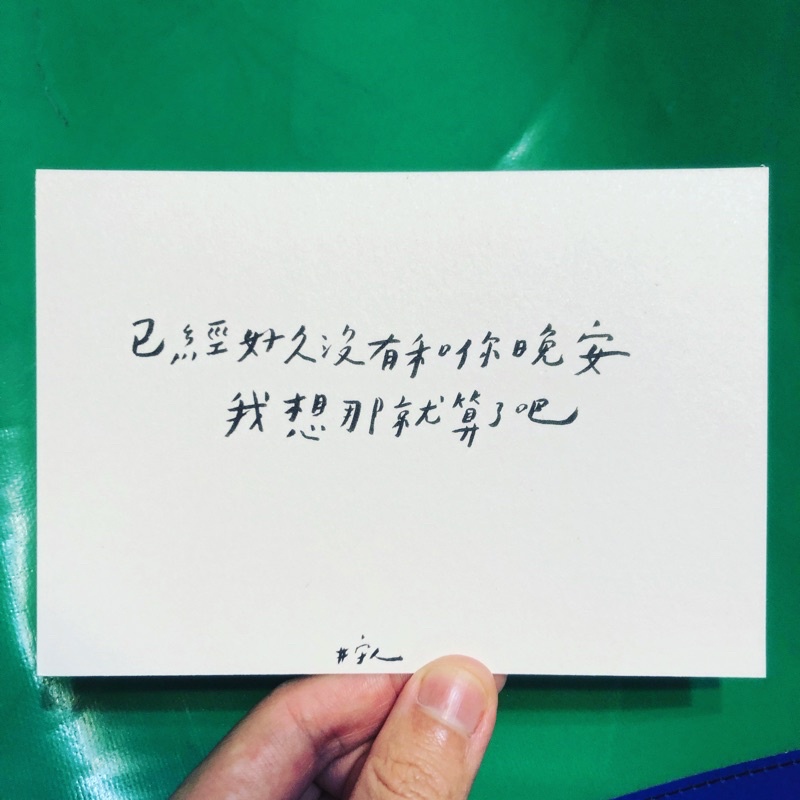 已經好久沒有和你晚安
我想那就算了吧
#守人